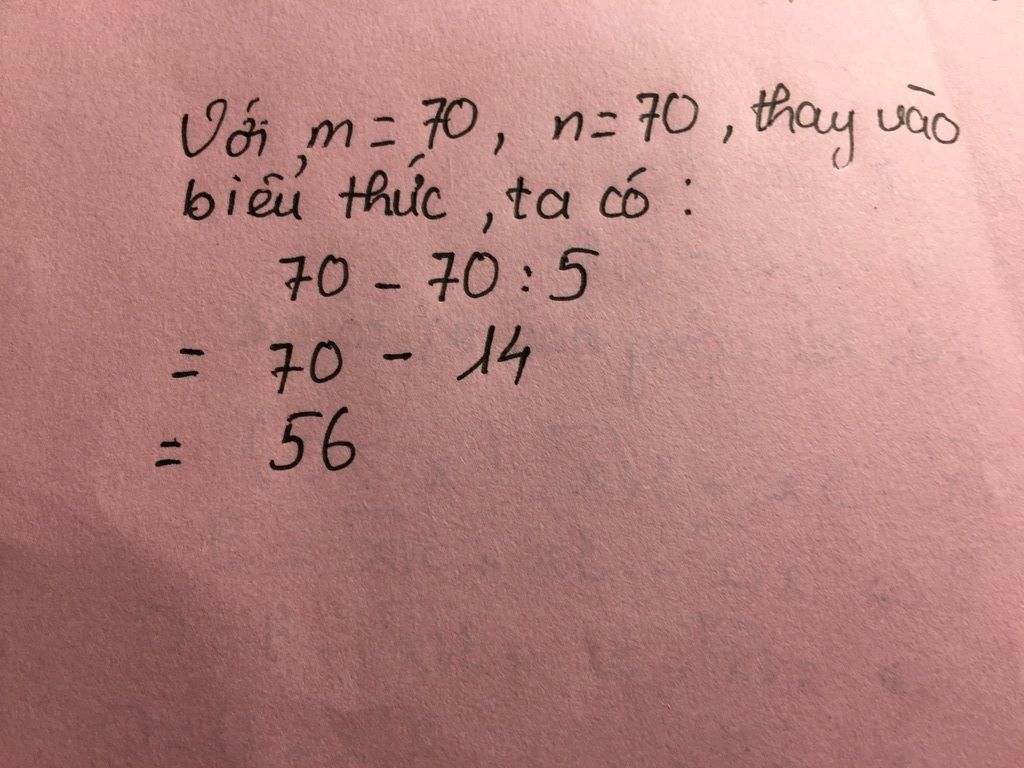 Với m = 70, n = 70, thay vào
biểu thức, ta có:
70 - 70 : 5
= 70 - 14
= 56